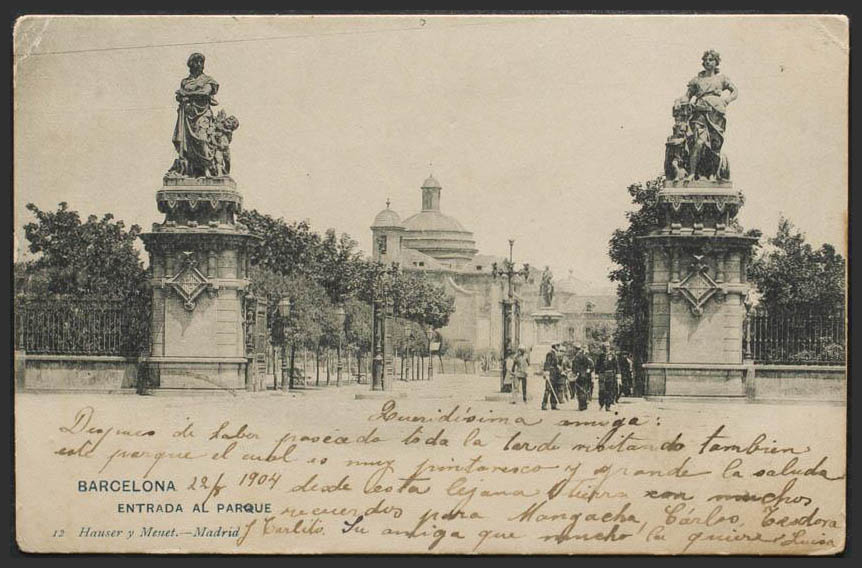 Queridísima amiga:
Despues de haber paseado toda la tarde visitando tambien
este parque el cual es muy pintaresco y grande la saluda
BARCELONA 22/8 1904 desde esta lejana tierra con muchos
ENTRADA AL PARQUE recuerdos para Mangacha, Cárlos, Teodora
12 Hauser y Menet.—Madrid y Carlito. Su amiga que mucho la quiere Luisa